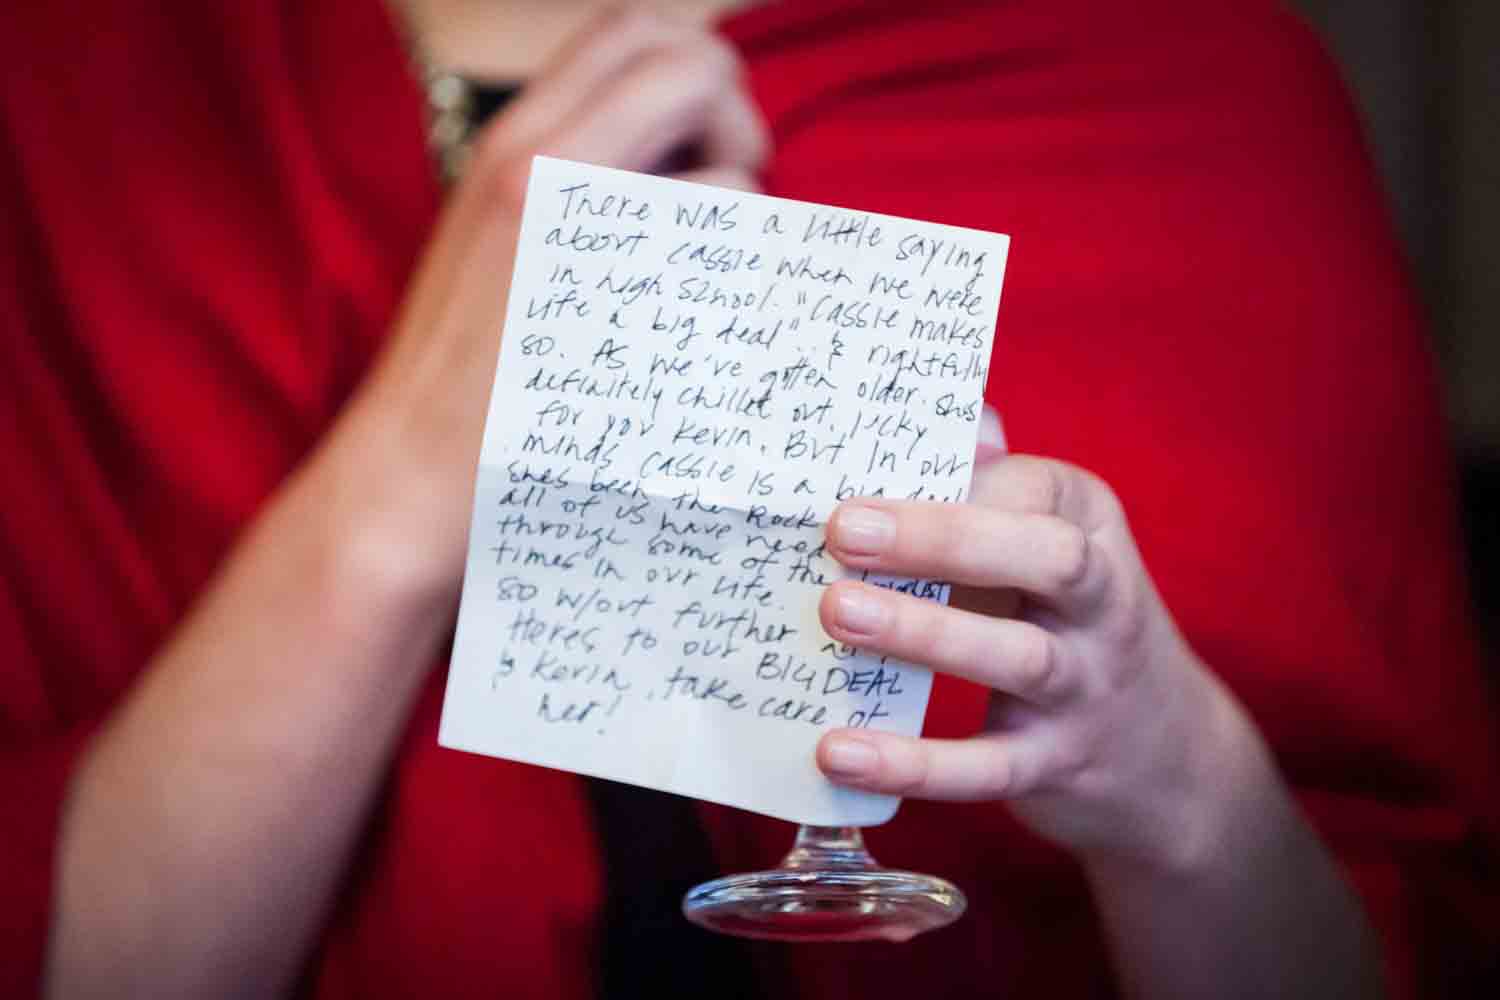 There was a little saying
about Cassie when we were
in high school. "Cassie makes
life a big deal".. & rightfully
so. As we've gotten older. shes
definitely chilled out. lucky
for you Kevin. But in our
minds Cassie is a big deal
shes been the Rock
all of us have need
through some of the
times in our life.
so w/out further
Heres to our BIG DEAL
& Kevin. take care of
her!